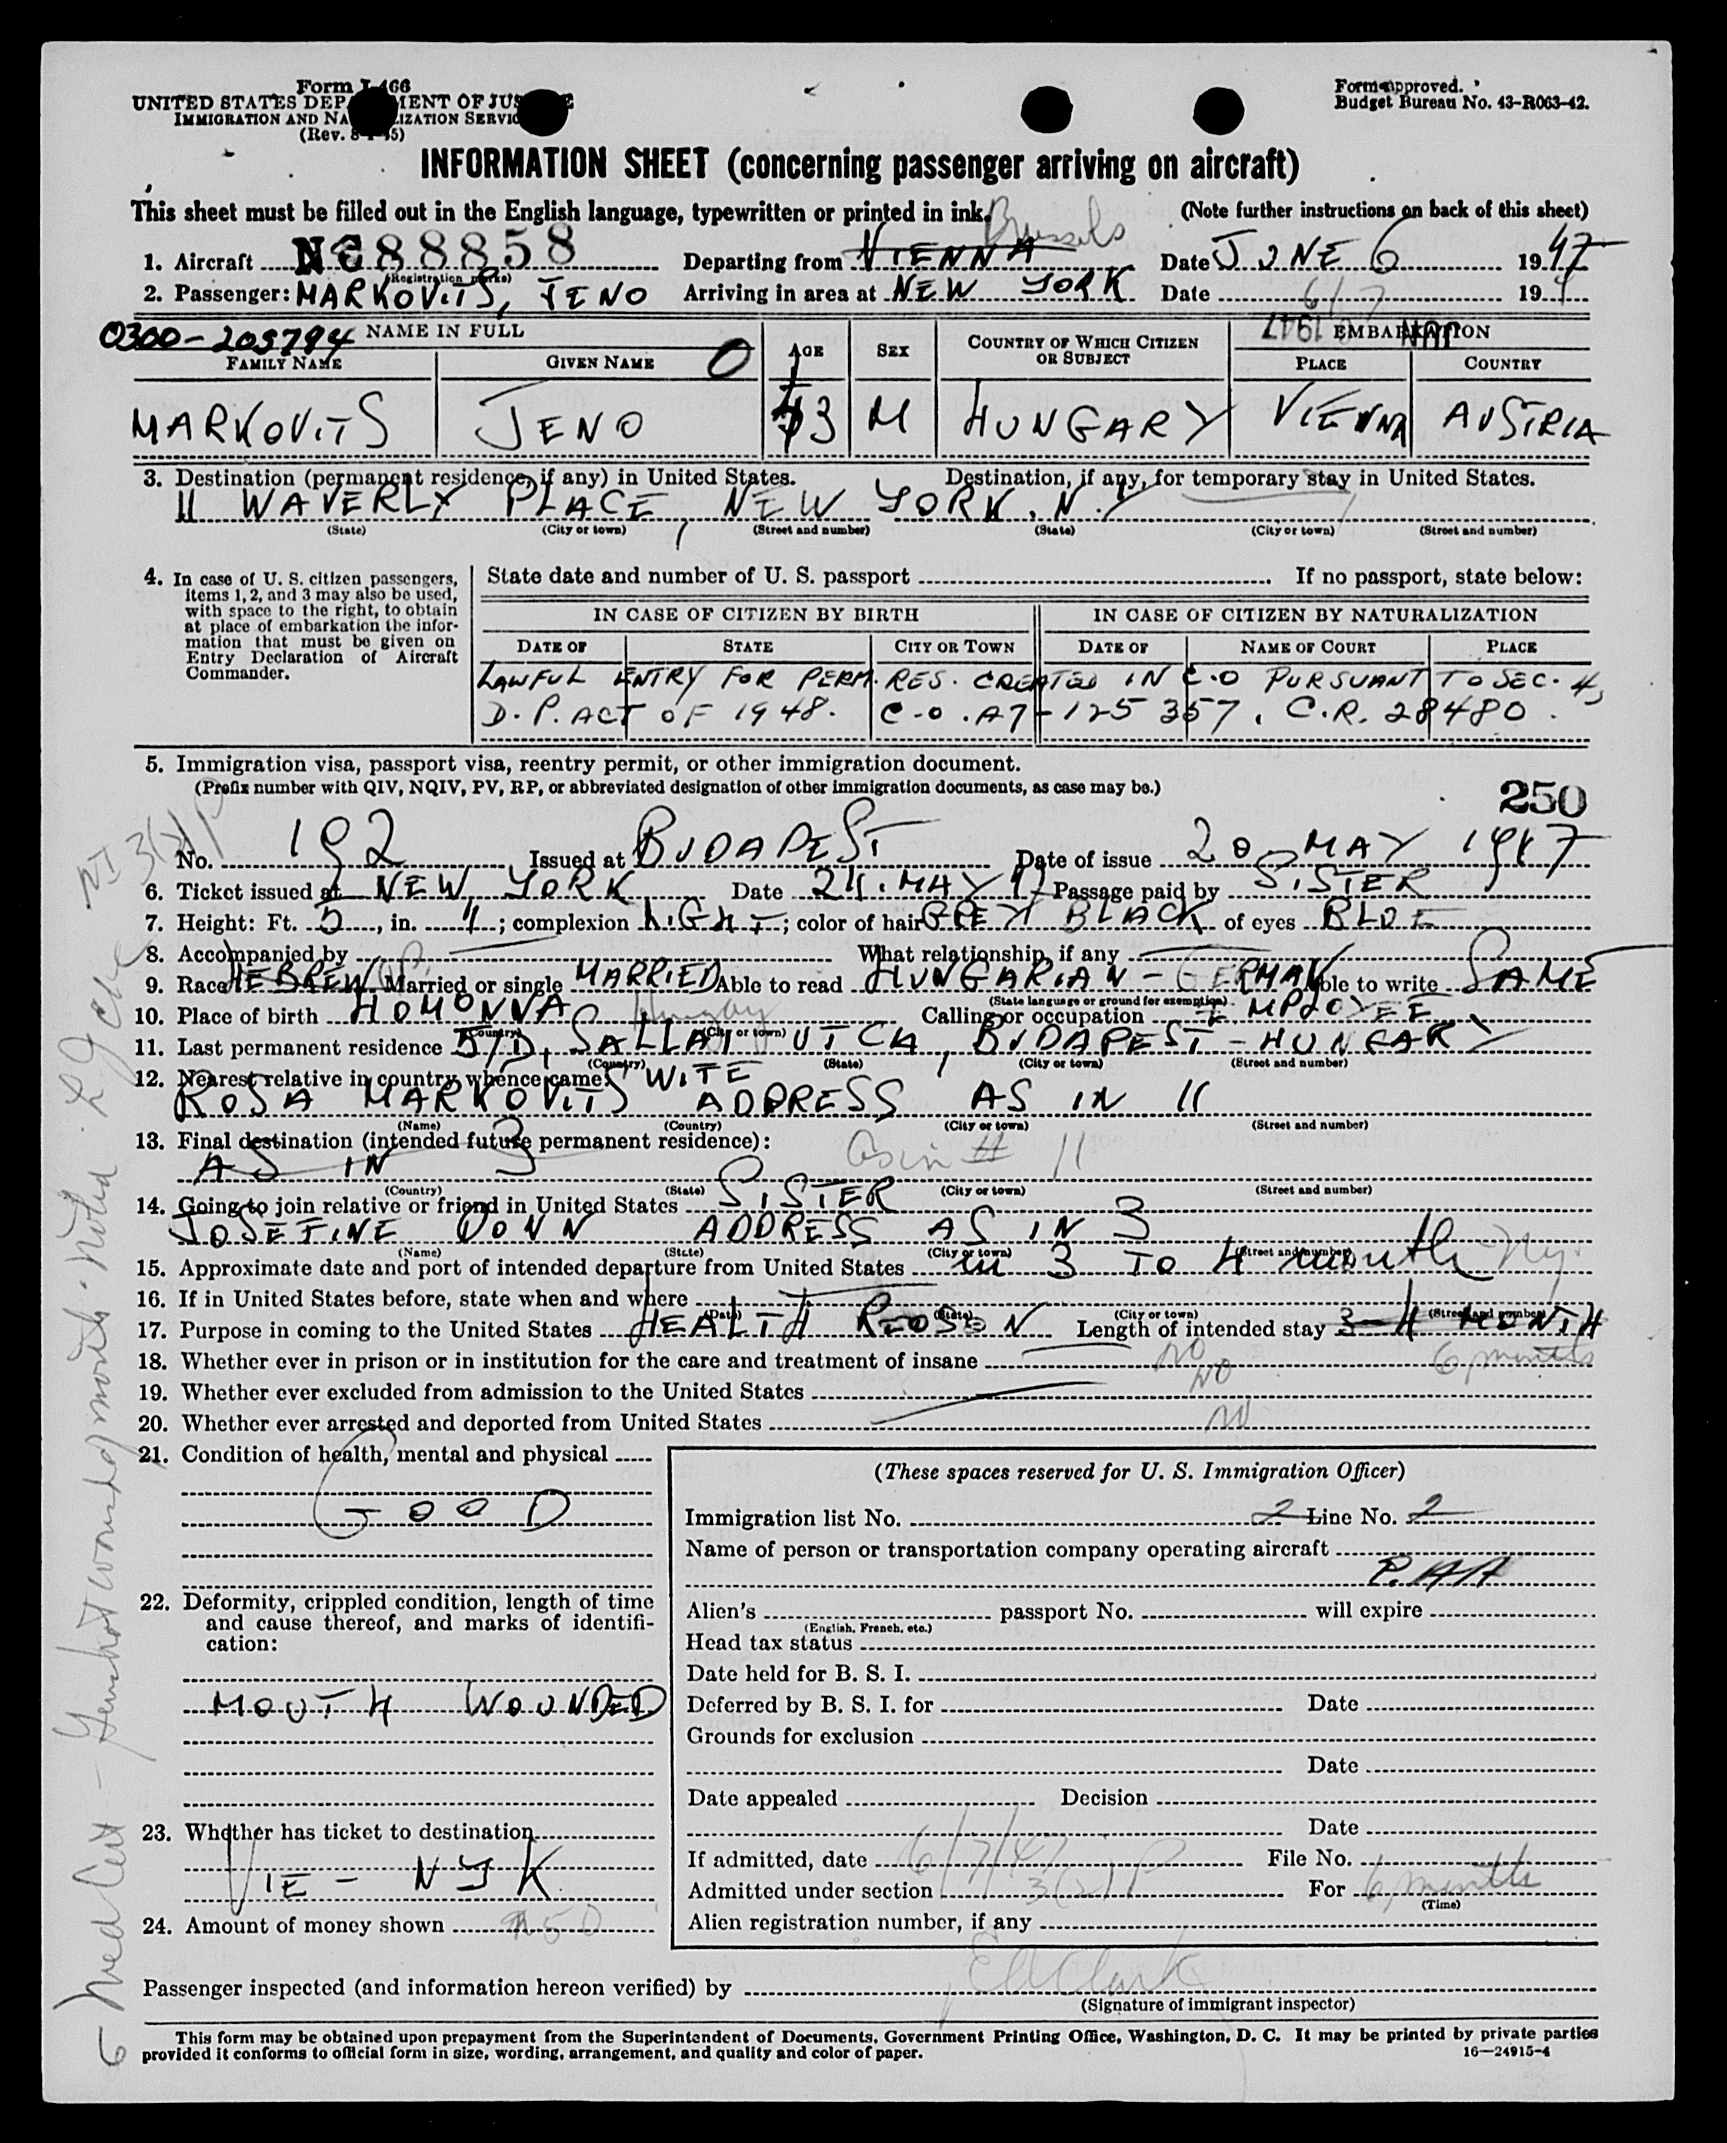 Form I-466
UNITED STATES DEPARTMENT OF JUSTICE
IMMIGRATION AND NATURALIZATION SERVICE
(Rev. 8-1-45)
Form approved.
Budget Bureau No. 43-R063-42.
INFORMATION SHEET (concerning passenger arriving on aircraft)
This sheet must be filled out in the English language, typewritten or printed in ink. (Note further instructions on back of this sheet)
Brussels
1. Aircraft NC 88858 Departing from VIENNA Date JUNE 6 1947
(Registration marks)
2. Passenger: MARKOVITS, JENO Arriving in area at NEW YORK Date 6/7 194
0300-205794 NAME IN FULL AGE SEX COUNTRY OF WHICH CITIZEN OR SUBJECT EMBARKATION
JUN 6 1947
FAMILY NAME GIVEN NAME O PLACE COUNTRY
MARKOVITS JENO 43 M HUNGARY VIENNA AUSTRIA
3. Destination (permanent residence, if any) in United States. Destination, if any, for temporary stay in United States.
11 WAVERLY PLACE, NEW YORK. N.Y
(State) (City or town) (Street and number) (State) (City or town) (Street and number)
4. In case of U. S. citizen passengers, items 1, 2, and 3 may also be used, with space to the right, to obtain at place of embarkation the information that must be given on Entry Declaration of Aircraft Commander.
State date and number of U. S. passport If no passport, state below:
IN CASE OF CITIZEN BY BIRTH IN CASE OF CITIZEN BY NATURALIZATION
DATE OF STATE CITY OR TOWN DATE OF NAME OF COURT PLACE
LAWFUL ENTRY FOR PERM. RES. CREATED IN C.O PURSUANT TO SEC. 4,
D.P. ACT OF 1948. C-O. A7-125357, C.R. 28480.
5. Immigration visa, passport visa, reentry permit, or other immigration document.
(Prefix number with QIV, NQIV, PV, RP, or abbreviated designation of other immigration documents, as case may be.)
250
No. 192 Issued at BUDAPEST Date of issue 20 MAY 1947
6. Ticket issued at NEW YORK Date 24. MAY 47 Passage paid by SISTER
7. Height: Ft. 5, in. 4; complexion LIGHT; color of hair GREY BLACK of eyes BLUE
8. Accompanied by What relationship, if any
9. Race HEBREW Married or single MARRIED Able to read HUNGARIAN - GERMAN Able to write SAME
(State language or ground for exemption)
10. Place of birth HOMONNA Hungary Calling or occupation EMPLOYEE
(Country) (City or town)
11. Last permanent residence 5/D, SALLAI UTCA, BUDAPEST - HUNGARY
(Country) (State) (City or town) (Street and number)
12. Nearest relative in country whence came: WIFE
ROSA MARKOVITS ADDRESS AS IN 11
(Name) (Country) (City or town) (Street and number)
13. Final destination (intended future permanent residence):
AS IN 3 As in # 11
(Country) (State) (City or town) (Street and number)
14. Going to join relative or friend in United States SISTER
JOSEFINE DONN ADDRESS AS IN 3
(Name) (State) (City or town) (Street and number)
15. Approximate date and port of intended departure from United States in 3 TO 4 month - Ny.
16. If in United States before, state when and where
(Date) (State) (City or town) (Street and number)
17. Purpose in coming to the United States HEALTH REOSON Length of intended stay 3-4 MONTH
6 months
18. Whether ever in prison or in institution for the care and treatment of insane no
19. Whether ever excluded from admission to the United States no
20. Whether ever arrested and deported from United States no
21. Condition of health, mental and physical
GOOD
22. Deformity, crippled condition, length of time and cause thereof, and marks of identification:
MOUTH WOUNDED
23. Whether has ticket to destination
VIE - NYK
24. Amount of money shown 250
(These spaces reserved for U. S. Immigration Officer)
Immigration list No. 2 Line No. 2
Name of person or transportation company operating aircraft
P.AA
Alien's passport No. will expire
(English, French, etc.)
Head tax status
Date held for B. S. I.
Deferred by B. S. I. for Date
Grounds for exclusion
Date
Date appealed Decision
Date
If admitted, date 6/7/47 File No.
Admitted under section 3(2) P For 6 months
(Time)
Alien registration number, if any
Passenger inspected (and information hereon verified) by E A Clark
(Signature of immigrant inspector)
This form may be obtained upon prepayment from the Superintendent of Documents, Government Printing Office, Washington, D. C. It may be printed by private parties
provided it conforms to official form in size, wording, arrangement, and quality and color of paper. 16—24915-4
Med Cert - Gunshot wound mouth. Noted
VI 3(2) P